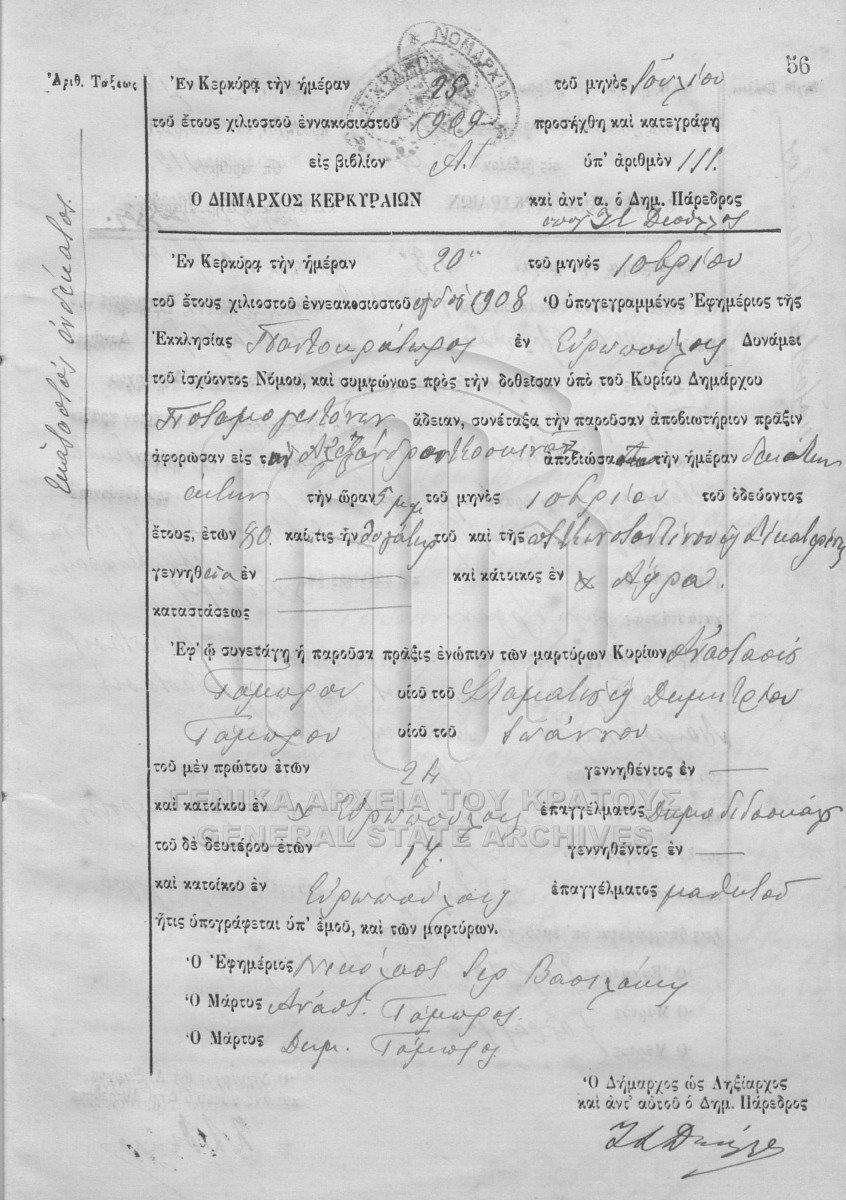 56
ΝΟΜΑΡΧΙΑ
Ἀριθ. Τάξεως
Ἐν Κερκύρᾳ τὴν ἡμέραν 28 τοῦ μηνὸς Ἰουλίου
τοῦ ἔτους χιλιοστοῦ ἐννακοσιοστοῦ 1909 προσήχθη καὶ κατεγράφη
εἰς βιβλίον Α.' ὑπ' ἀριθμὸν 111.
Ο ΔΗΜΑΡΧΟΣ ΚΕΡΚΥΡΑΙΩΝ καὶ ἀντ' α. ὁ Δημ. Πάρεδρος
Ἑκατοστὸς ἑνδέκατος.
Ἐν Κερκύρᾳ τὴν ἡμέραν 20 τοῦ μηνὸς 10βρίου
τοῦ ἔτους χιλιοστοῦ ἐννεακοσιοστοῦ 1908 Ὁ ὑπογεγραμμένος Ἐφημέριος τῆς
Ἐκκλησίας Παντοκράτωρος ἐν Εὐρωπούλοις Δυνάμει
τοῦ ἰσχύοντος Νόμου, καὶ συμφώνως πρὸς τὴν δοθεῖσαν ὑπὸ τοῦ Κυρίου Δημάρχου
Ποταμογειτόνων ἄδειαν, συνέταξα τὴν παροῦσαν ἀποβιωτήριον πρᾶξιν
ἀφορῶσαν εἰς τ ἀποβιώσα τὴν ἡμέραν δεκάτην
ἕκτην τὴν ὥραν 5 μμ τοῦ μηνὸς 10βρίου τοῦ ὁδεύοντος
ἔτους, ἐτῶν 80. καὶ τις ἦν θυγάτηρ τοῦ καὶ τῆς Κωνσταντίνου Αἰκατερίνης
γεννηθεῖσα ἐν καὶ κάτοικος ἐν Ἄφρα.
καταστάσεως
Ἐφ' ᾧ συνετάγη ἡ παροῦσα πρᾶξις ἐνώπιον τῶν μαρτύρων Κυρίων Ἀναστασίου
Γάμπρου υἱοῦ τοῦ Σταματίου ἢ Δημητρίου
Γάμπρου υἱοῦ τοῦ Ἰωάννου
τοῦ μὲν πρώτου ἐτῶν 24 γεννηθέντος ἐν
καὶ κατοίκου ἐν Εὐρωπούλοις ἐπαγγέλματος Δημοδιδασκάλου
τοῦ δὲ δευτέρου ἐτῶν γεννηθέντος ἐν
καὶ κατοίκου ἐν Εὐρωπούλοις ἐπαγγέλματος μαθητοῦ
ἥτις ὑπογράφεται ὑπ' ἐμοῦ, καὶ τῶν μαρτύρων.
Ὁ Ἐφημέριος Νικόλαος Ἱερ Βασιλάκης
Ὁ Μάρτυς Ἀναστ. Γάμπρος.
Ὁ Μάρτυς Δημ. Γάμπρος
Ὁ Δήμαρχος ὡς Ληξίαρχος
καὶ ἀντ' αὐτοῦ ὁ Δημ. Πάρεδρος
ΓΕΝΙΚΑ ΑΡΧΕΙΑ ΤΟΥ ΚΡΑΤΟΥΣ
GENERAL STATE ARCHIVES